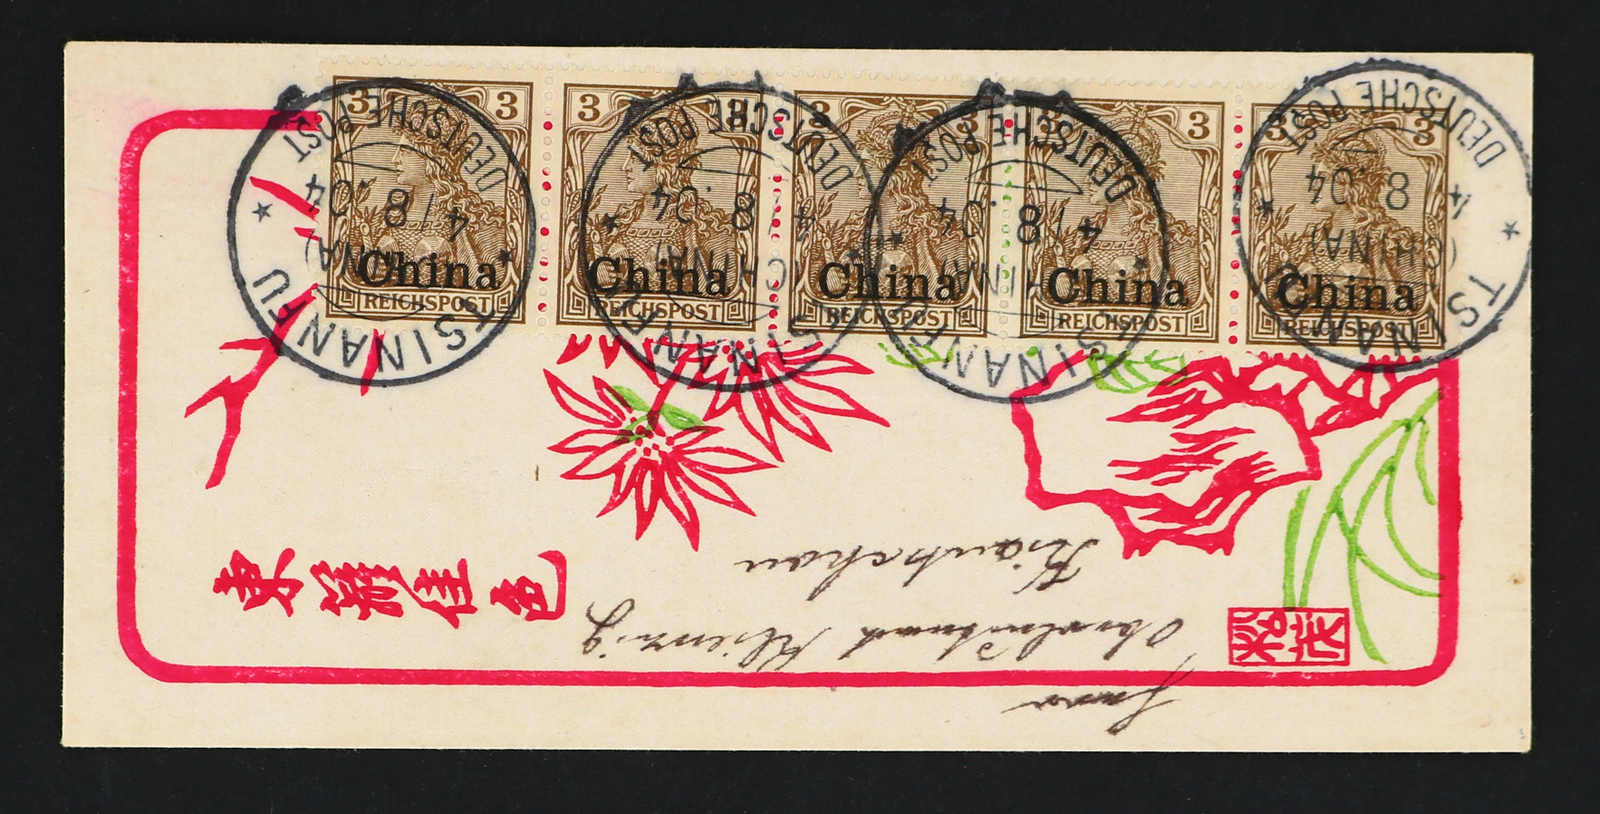 3 3
China
REICHSPOST
3 3
China
REICHSPOST
3 3
China
REICHSPOST
3 3
China
REICHSPOST
3 3
China
REICHSPOST
TSINANFU
(CHINA)
4/8.04
DEUTSCHE POST
TSINANFU
(CHINA)
4/8.04
DEUTSCHE POST
TSINANFU
(CHINA)
4/8.04
DEUTSCHE POST
TSINANFU
(CHINA)
4/8.04
DEUTSCHE POST
東籬佳色
Frau
Oberleutnant
Kiautschou